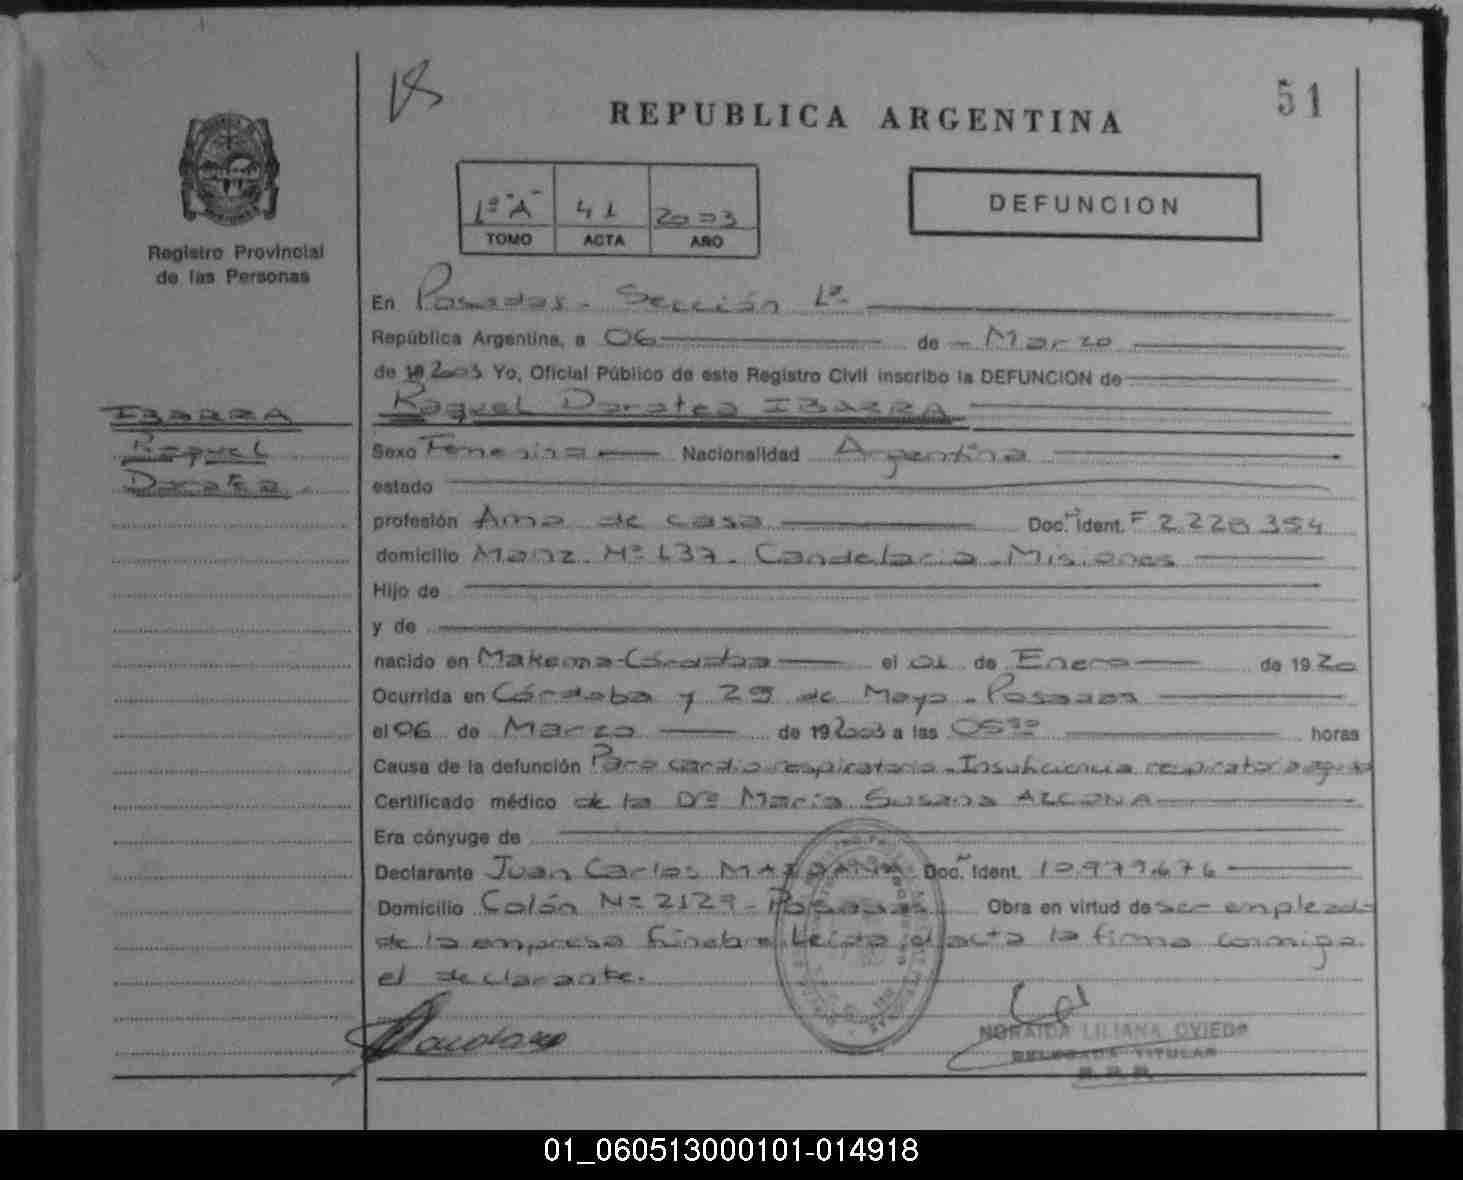 51
REPUBLICA ARGENTINA
DEFUNCION
1º "A" 41 2003
TOMO ACTA AÑO
Registro Provincial
de las Personas
En Posadas - Sección 1ª
República Argentina, a 06 de - Marzo
de 19 2003 Yo, Oficial Público de este Registro Civil inscribo la DEFUNCION de
IBARRA
Raquel
Dorotea
Raquel Dorotea IBARRA
Sexo Femenina Nacionalidad Argentina
estado
profesión Ama de casa Doc. Nº Ident. F 2.228.354
domicilio Manz. Nº 137 - Candelaria - Misiones
Hijo de
y de
nacido en Makema - Córdoba el 01 de Enero de 1920
Ocurrida en Córdoba y 29 de Mayo - Posadas
el 06 de Marzo de 19 2003 a las 05 horas
Causa de la defunción Paro cardio respiratorio - Insuficiencia respiratoria aguda
Certificado médico de la Drª María Susana
Era cónyuge de
Declarante Juan Carlos Doc. Nº Ident. 10.979.676
Domicilio Colón Nº 2129 - Posadas Obra en virtud de ser empleado
de la empresa fúnebre. Leída el acta la firma conmigo
el declarante.
NORAIDA LILIANA OVIEDO
DELEGADA TITULAR
R.P.P.
01_060513000101-014918